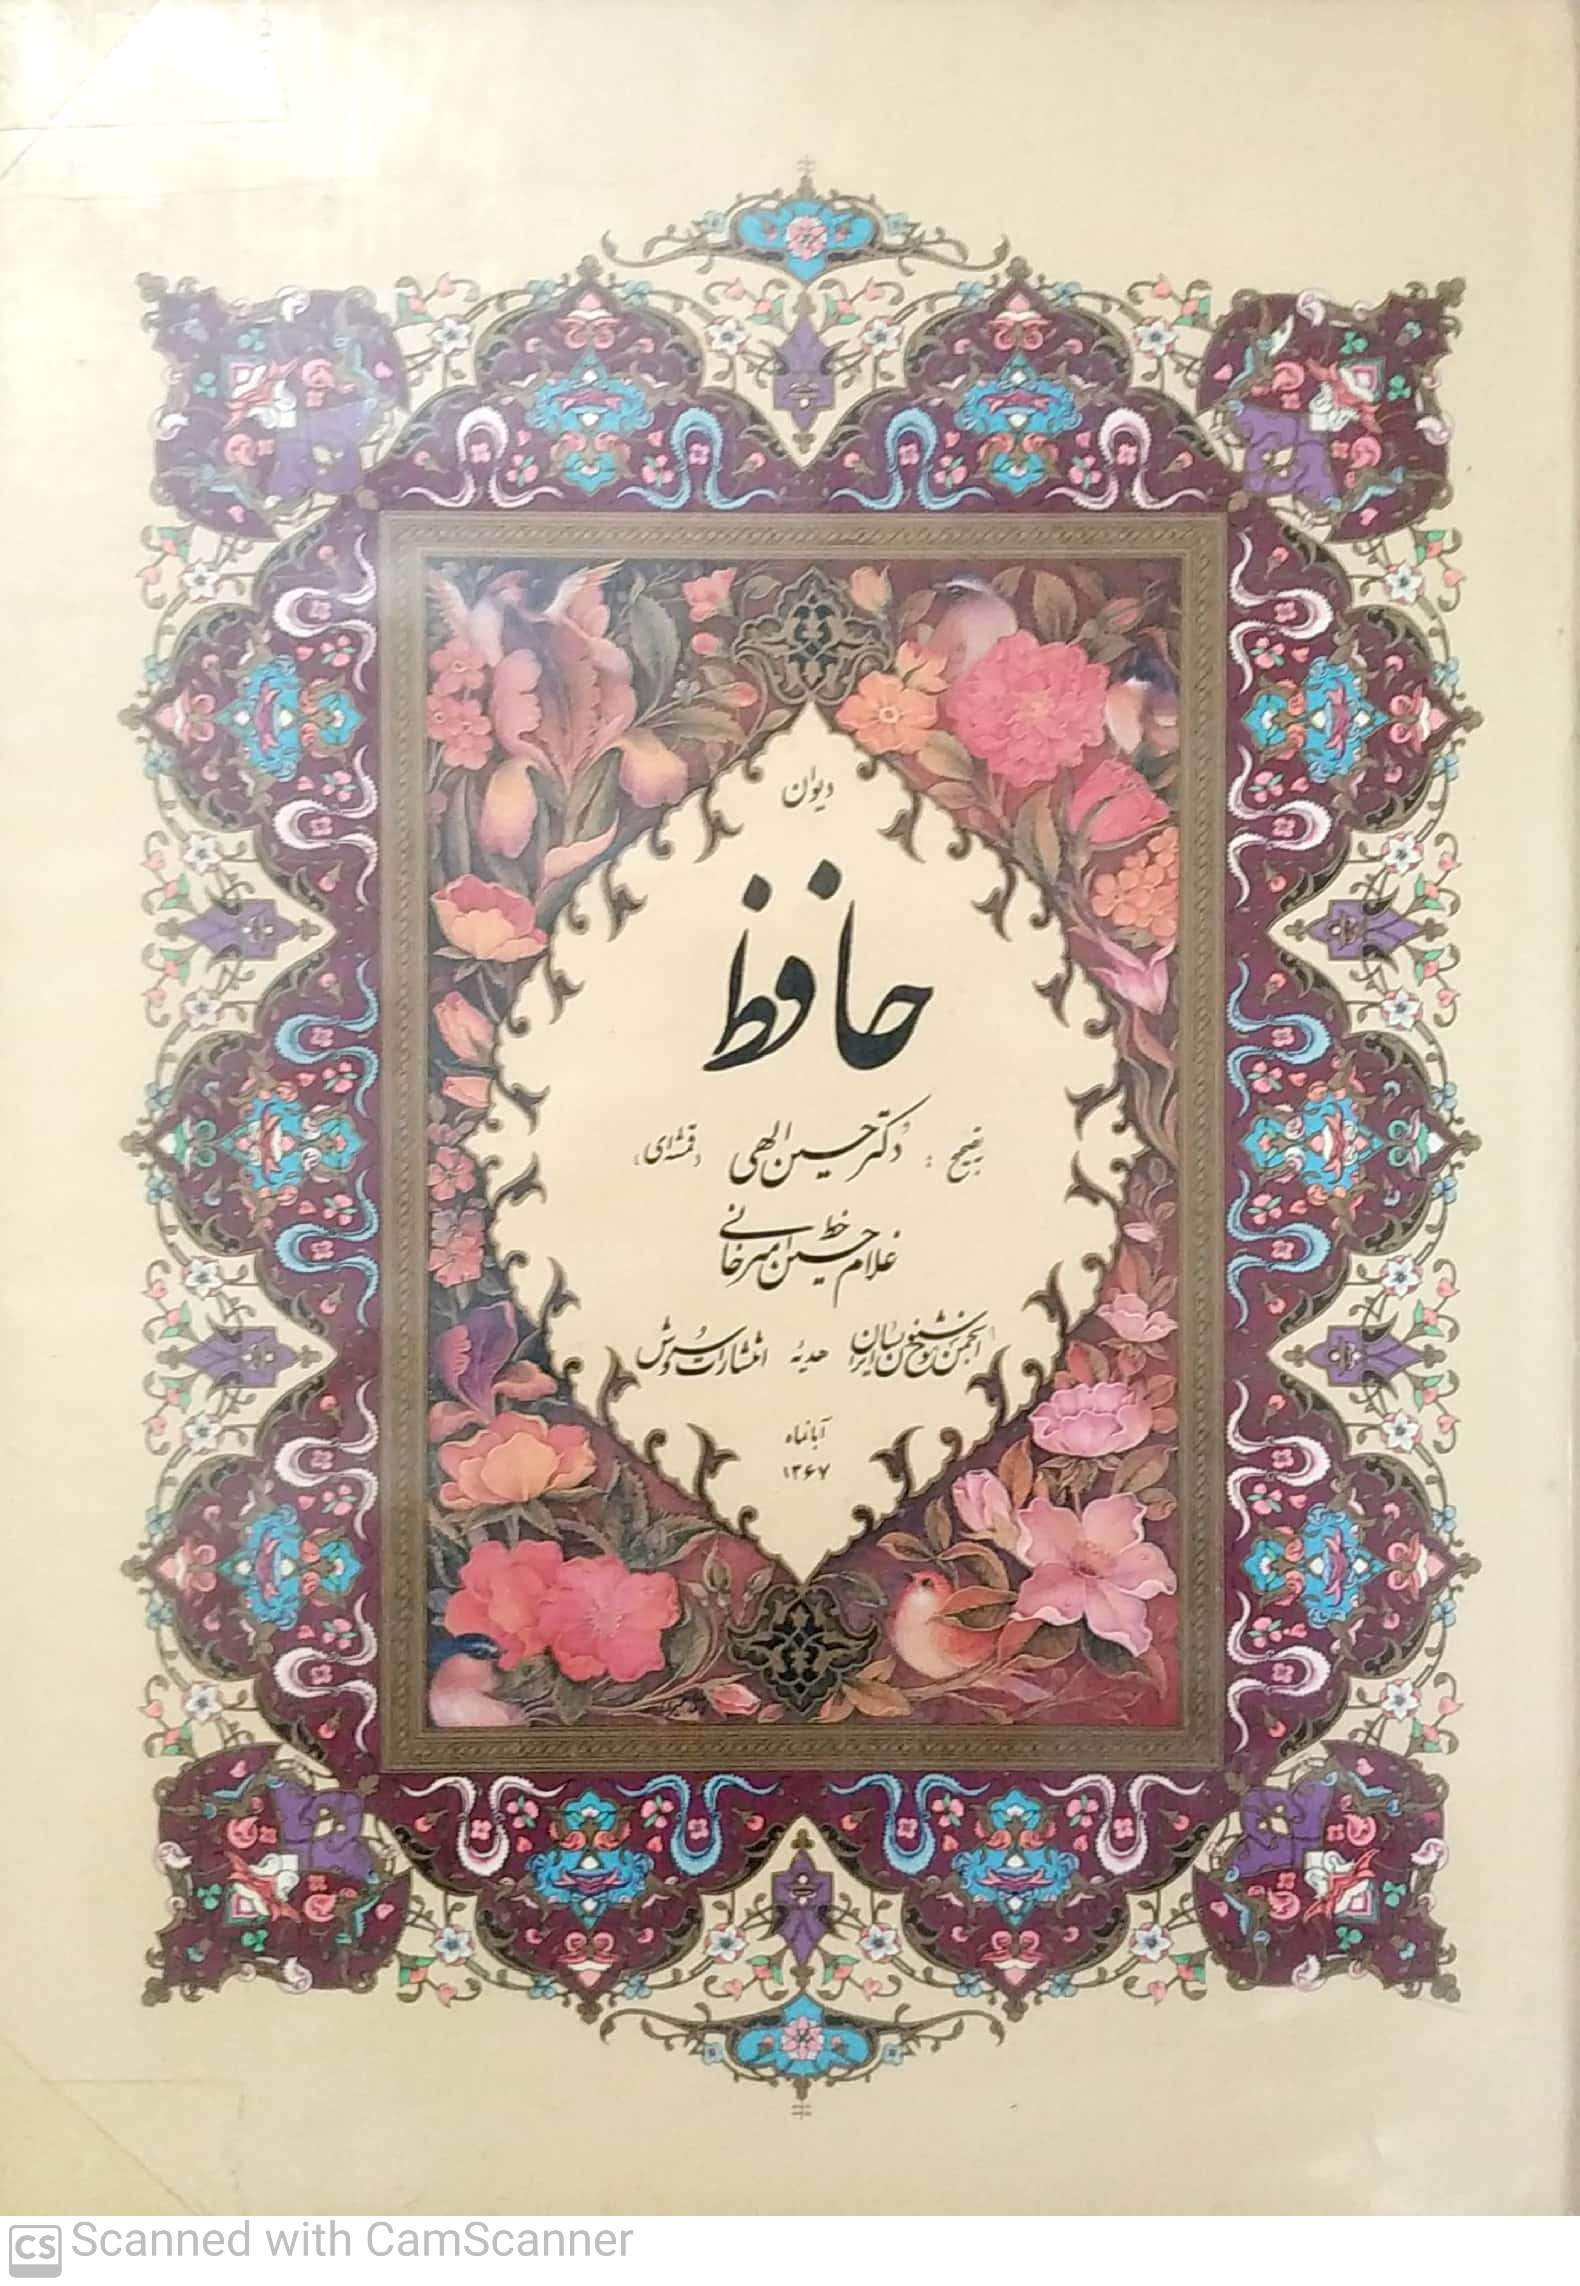 دیوان
حافظ
بتصحیح : دکتر حسین الهی (قمشه‌ای)
خط
غلامحسین امیرخانی
انجمن خوشنویسان ایران هدیهٔ انتشارات سروش
آبانماه
۱۳۶۷
CS Scanned with CamScanner